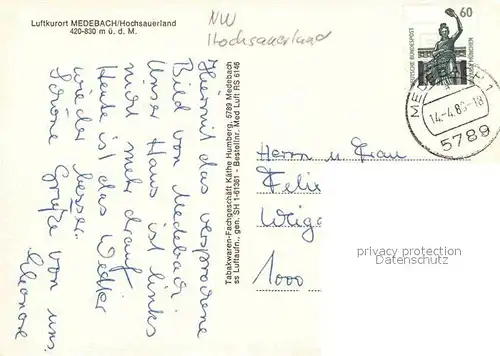 Luftkurort MEDEBACH/Hochsauerland
420-830 m ü. d. M.
NW
Hochsauerland
60
DEUTSCHE BUNDESPOST
MEDEBACH 1
14.-4.88-18
5789
Hiermit das versprochene
Bild von Medebach
Unser Haus ist links
nicht mehr drauf.
Heute ist das Wetter
wieder besser.
Schöne Grüße von uns.
Eleonore
Tabakwaren-Fachgeschäft Käthe Humberg, 5789 Medebach
ss Luftaufn., gen. SH 1-61381 - Bestellnr. Med Luft RS 6146
Herrn u. Frau
Felix
Weiga
1000
privacy protection
www.ansichtskartenversand.com